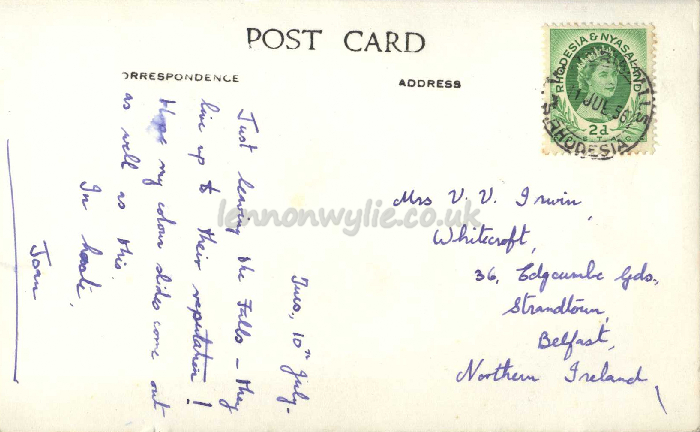 POST CARD
ORRESPONDENCE
ADDRESS
RHODESIA & NYASALAND
2d
1 JUL 56
S. RHODESIA
Tues., 10th July.
Just leaving the Falls – they
live up to their reputation!
Hope my colour slides come out
as well as this.
In haste,
Mrs V. V. Irwin,
Whitecroft,
36, Edgcumbe Gds.,
Strandtown,
Belfast,
Northern Ireland
lennonwylie.co.uk